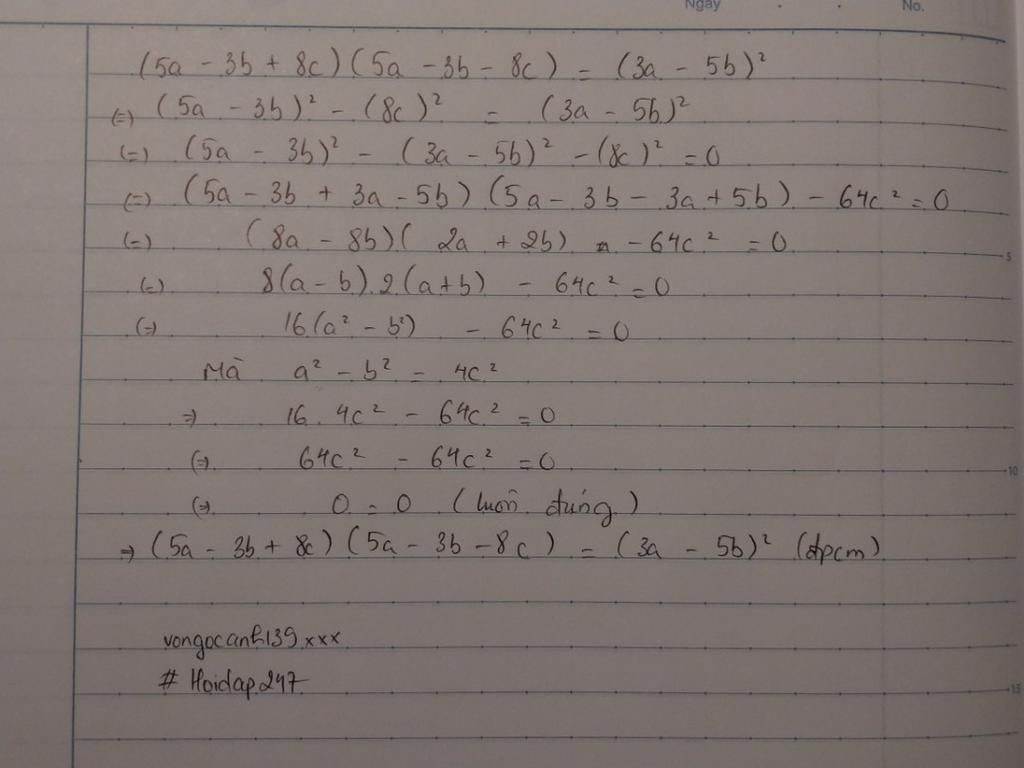 Ngày No.
(5a - 3b + 8c)(5a - 3b - 8c) = (3a - 5b)²
(=) (5a - 3b)² - (8c)² = (3a - 5b)²
(=) (5a - 3b)² - (3a - 5b)² - (8c)² = 0
(=) (5a - 3b + 3a - 5b)(5a - 3b - 3a + 5b) - 64c² = 0
(=) (8a - 8b)(2a + 2b) - 64c² = 0
5
(=) 8(a - b).2(a + b) - 64c² = 0
(=) 16(a² - b²) - 64c² = 0
Mà a² - b² = 4c²
=> 16.4c² - 64c² = 0
(=) 64c² - 64c² = 0
10
(=) 0 = 0 (luôn đúng)
=> (5a - 3b + 8c)(5a - 3b - 8c) = (3a - 5b)² (đpcm)
vongocanh139xxx
# Hoidap247
15